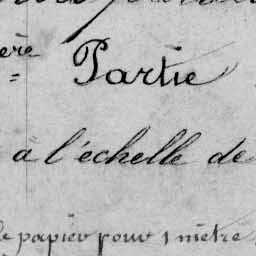 ère Partie
à l'échelle de
papier pour 1 mètre